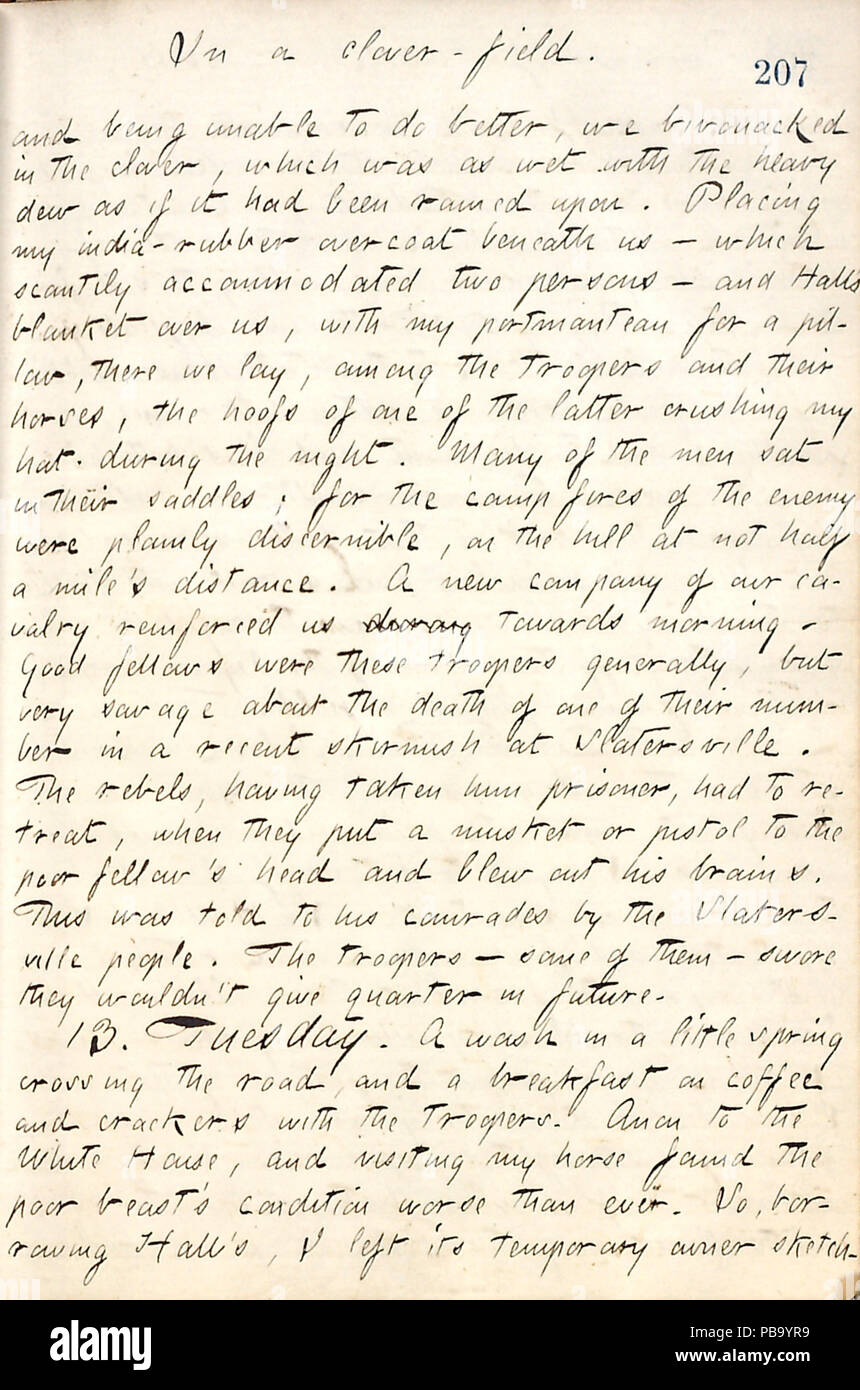 In a clover-field.
207
and being unable to do better, we bivouacked
in the clover, which was as wet with the heavy
dew as if it had been rained upon. Placing
my india-rubber overcoat beneath us — which
scantily accommodated two persons — and Hall's
blanket over us, with my portmanteau for a pil-
low, there we lay, among the troopers and their
horses, the hoofs of one of the latter crushing my
hat during the night. Many of the men sat
in their saddles; for the camp fires of the enemy
were plainly discernible, on the hill at not half
a mile's distance. A new company of our ca-
valry reinforced us during towards morning.
Good fellows were these troopers generally, but
very savage about the death of one of their num-
ber in a recent skirmish at Slatersville.
The rebels, having taken him prisoner, had to re-
treat, when they put a musket or pistol to the
poor fellow's head and blew out his brains.
This was told to his comrades by the Slaters-
ville people. The troopers — some of them — swore
they wouldn't give quarter in future.
13. Tuesday. A wash in a little spring
crossing the road, and a breakfast on coffee
and crackers with the troopers. Anon to the
White House, and visiting my horse found the
poor beast's condition worse than ever. So, bor-
rowing Hall's, I left its temporary owner sketch-
alamy
Image ID: PB9YR9
www.alamy.com